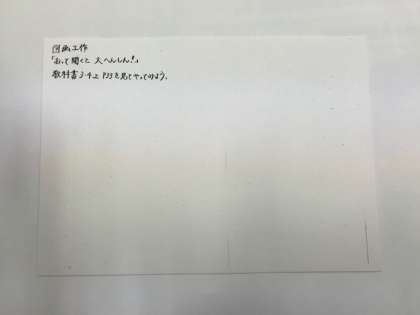 図画工作
「おって開くと 大へんしん!」
教科書3・4上 P33を見てやってみよう。